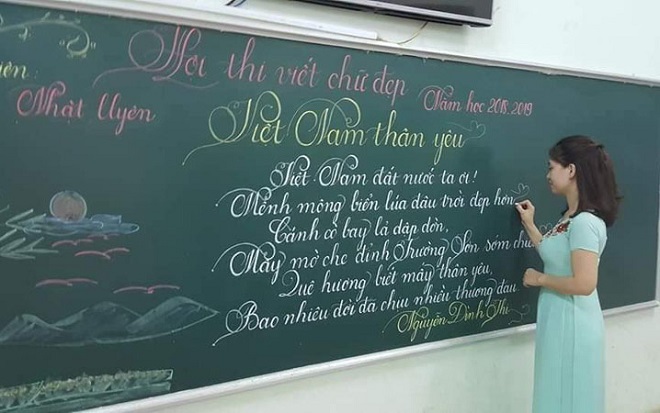 Hội thi viết chữ đẹp
Năm học 2018.2019
viên:
Nhật Uyên
Việt Nam thân yêu
Việt Nam đất nước ta ơi!
Mênh mông biển lúa đâu trời đẹp hơn
Cánh cò bay lả dập dờn,
Mây mờ che đỉnh Trường Sơn sớm chiều
Quê hương biết mấy thân yêu,
Bao nhiêu đời đã chịu nhiều thương đau
Nguyễn Đình Thi